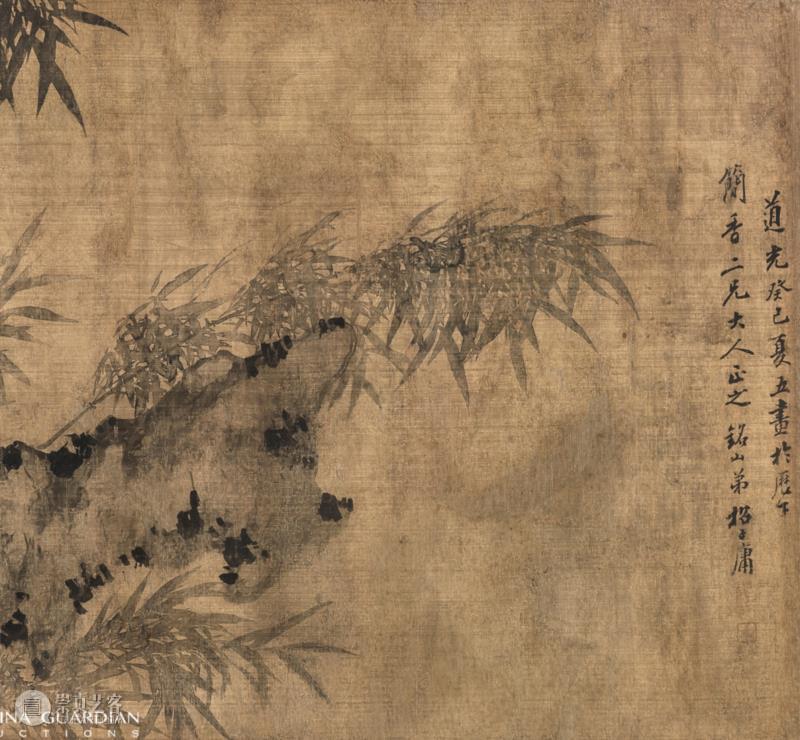 道光癸巳夏五畫於歷下
簡香二兄大人正之 銘山弟招子庸
崇真艺客
INA GUARDIAN
UCTIONS